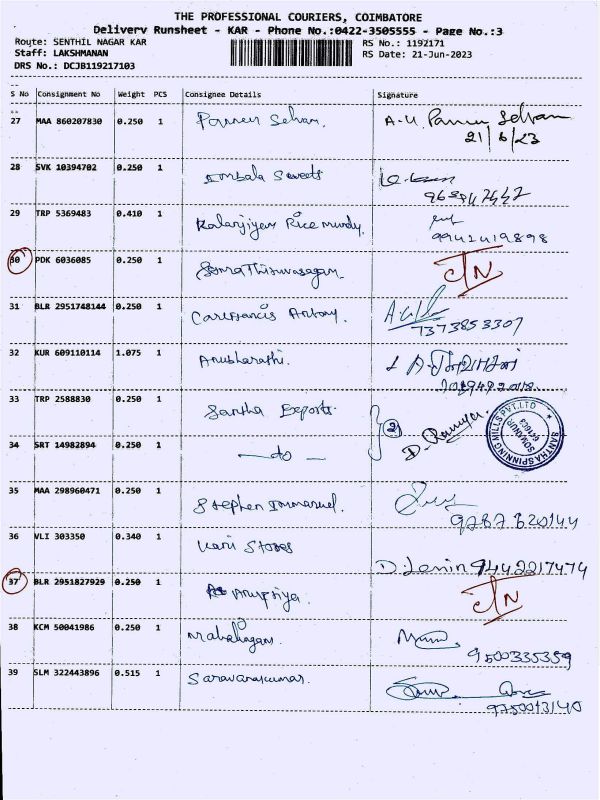 THE PROFESSIONAL COURIERS, COIMBATORE
Delivery Runsheet - KAR - Phone No.:0422-3505555 - Page No.:3
Route: SENTHIL NAGAR KAR RS No.: 1192171
Staff: LAKSHMANAN RS Date: 21-Jun-2023
DRS No.: DCJB119217103
S No Consignment No Weight PCS Consignee Details Signature
27 MAA 860207830 0.250 1 Ponnen Selvam. A-U. Ponnu Selvam
21/6/23
28 SVK 10394702 0.250 1 Sweets
29 TRP 5369483 0.410 1 Kalanjiyam Rice mundy.
9942419898
30 PDK 6036085 0.250 1 Somathiruvasagam. JN
31 BLR 2951748144 0.250 1 Antony.
7373853307
32 KUR 609110114 1.075 1 Anubharathi.
33 TRP 2588830 0.250 1 Santha Exports. 2 D. Ramya.
SANTHA SPINNING MILLS PVT.LTD
SOMANUR
34 SRT 14982894 0.250 1 — do —
35 MAA 298960471 0.250 1 Stephen Immanuel.
9787820144
36 VLI 303350 0.340 1 Vani Stores
D. Lenin 9442217474
37 BLR 2951827929 0.250 1 Anupriya. JN
38 KCM 50041986 0.250 1 Mahalingam.
9500335359
39 SLM 322443896 0.515 1 Saravanakumar.
9750013140